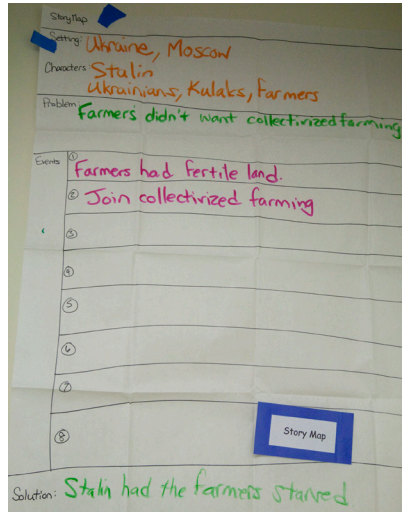 Story Map
Setting: Ukraine, Moscow
Characters Stalin
Ukrainians, Kulaks, Farmers
Problem Farmers didn't want collectivized farming
Events ① Farmers had fertile land.
② Join collectivized farming
③
④
⑤
⑥
⑦
⑧
Story Map
Solution: Stalin had the farmers starved